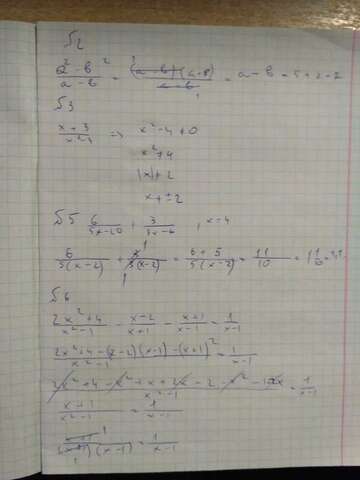 Б2
a² - b² / a - b = (a - b)(a + b) / a - b = a - b = 5 + 2 = 2
Б3
x + 3 / x² - 4 => x² - 4 ≠ 0
x² ≠ 4
|x| ≠ 2
x ≠ ± 2
Б5 6 / 5x - 10 + 3 / 3x - 6 , x = 4
6 / 5(x - 2) + 3 / 3(x - 2) = 6 + 5 / 5(x - 2) = 11 / 10 = 1 1/10 = 1,1
Б6
2x² + 4 / x² - 1 - x - 2 / x + 1 - x + 1 / x - 1 = 1 / x - 1
2x² + 4 - (x - 2)(x - 1) - (x + 1)² / x² - 1 = 1 / x - 1
2x² + 4 - x² + x + 2x - 2 - x² - 1 - 2x / x² - 1 = 1 / x - 1
x + 1 / x² - 1 = 1 / x - 1
(x - 1) = 1 / x - 1